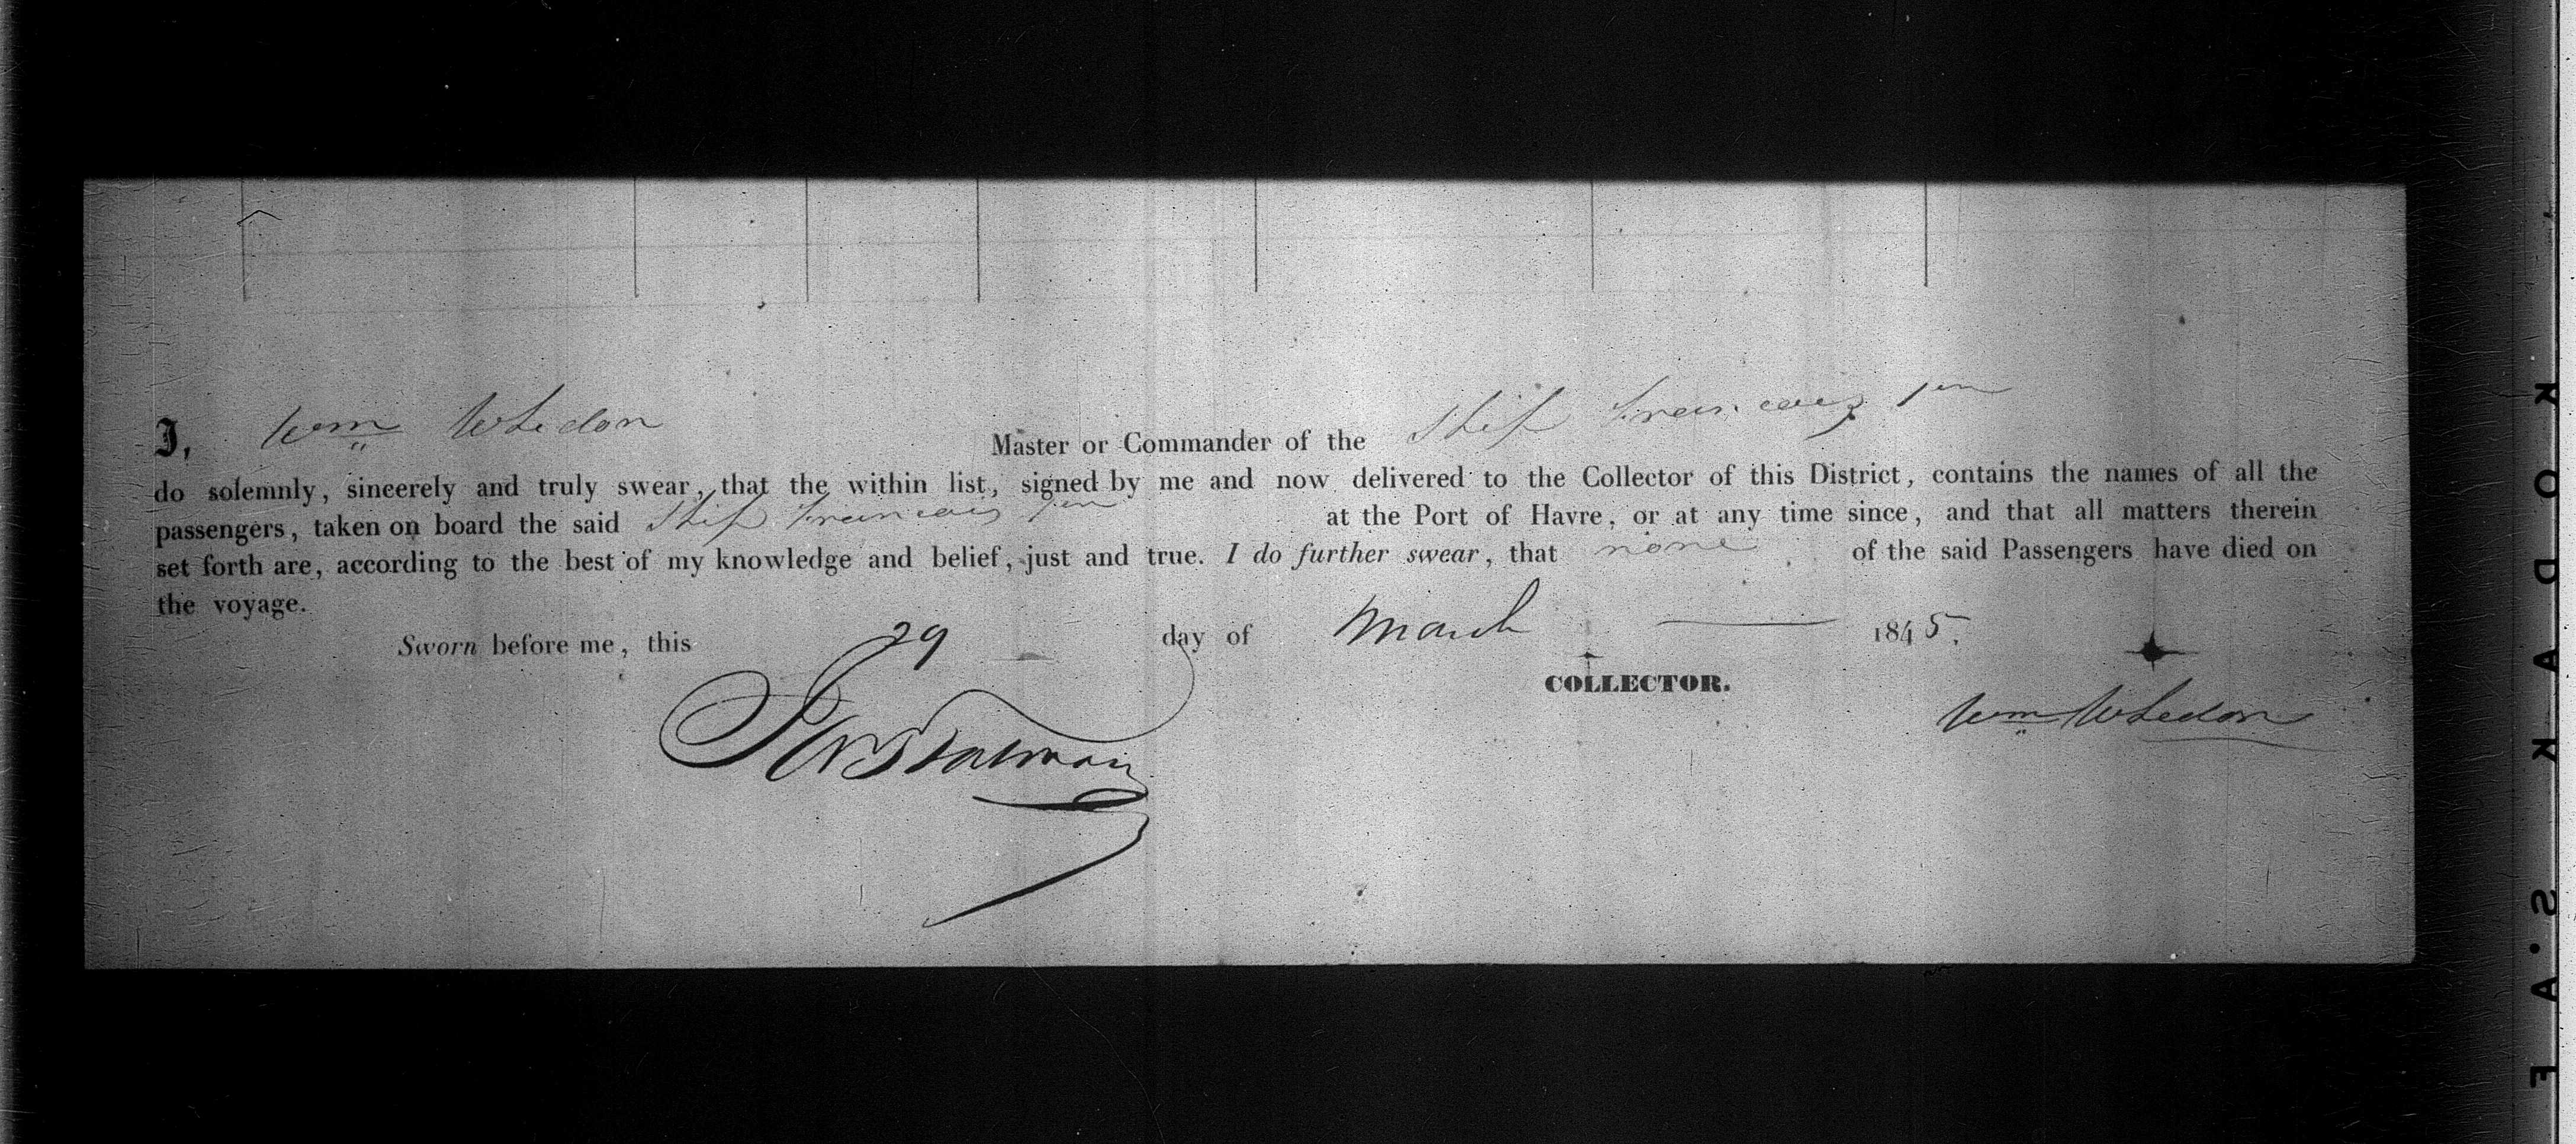 I, Wm Whedon Master or Commander of the Ship Francois 1er
do solemnly, sincerely and truly swear, that the within list, signed by me and now delivered to the Collector of this District, contains the names of all the
passengers, taken on board the said Ship Francois 1er at the Port of Havre, or at any time since, and that all matters therein
set forth are, according to the best of my knowledge and belief, just and true. I do further swear, that none of the said Passengers have died on
the voyage.
Sworn before me, this 29 day of March 1845.
COLLECTOR.
Wm Whedon
KODAK S.A.F